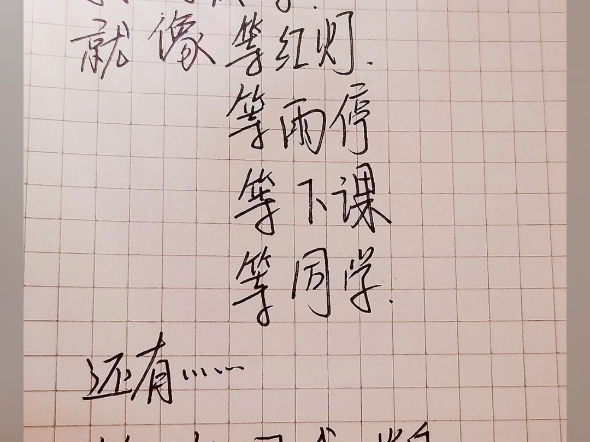 就像等红灯.
等雨停
等下课
等同学.
还有……